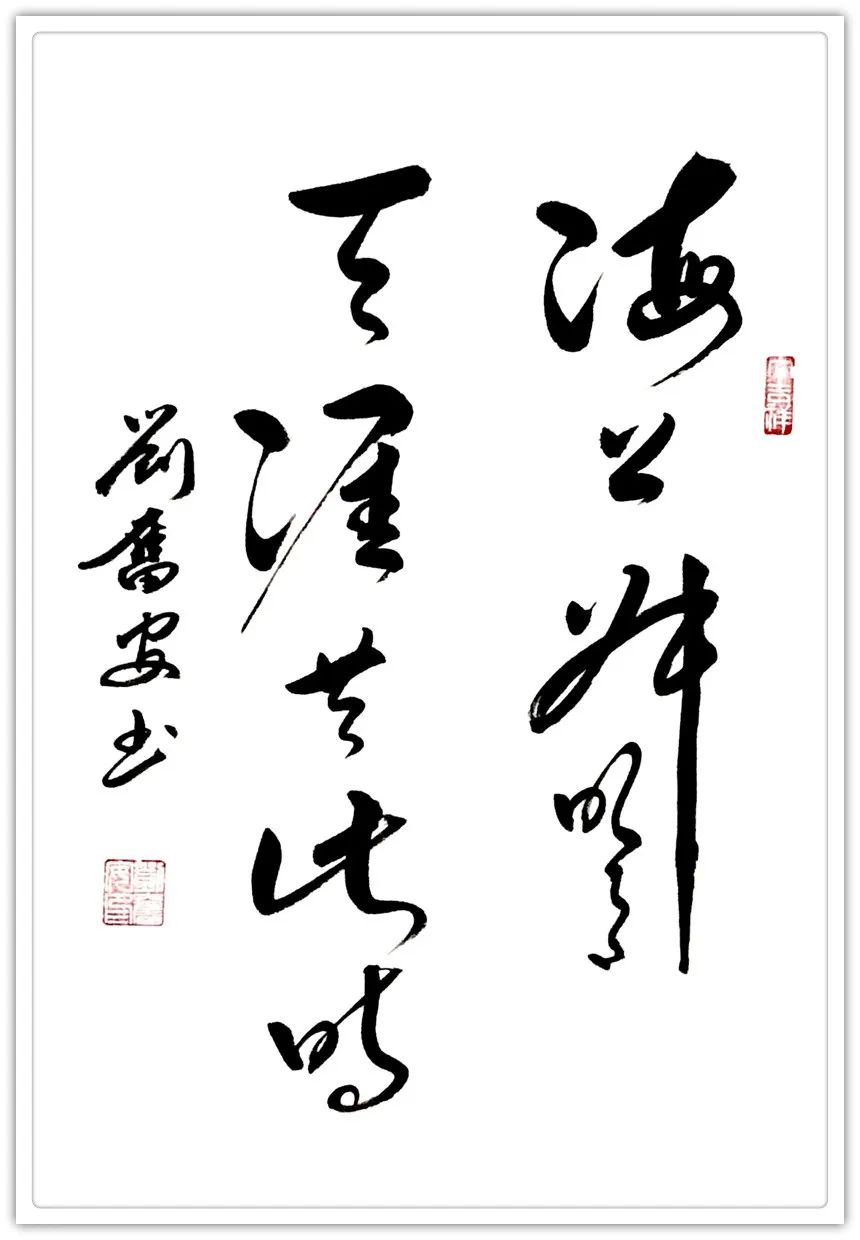 海上升明月
天涯共此时
刘奋安书